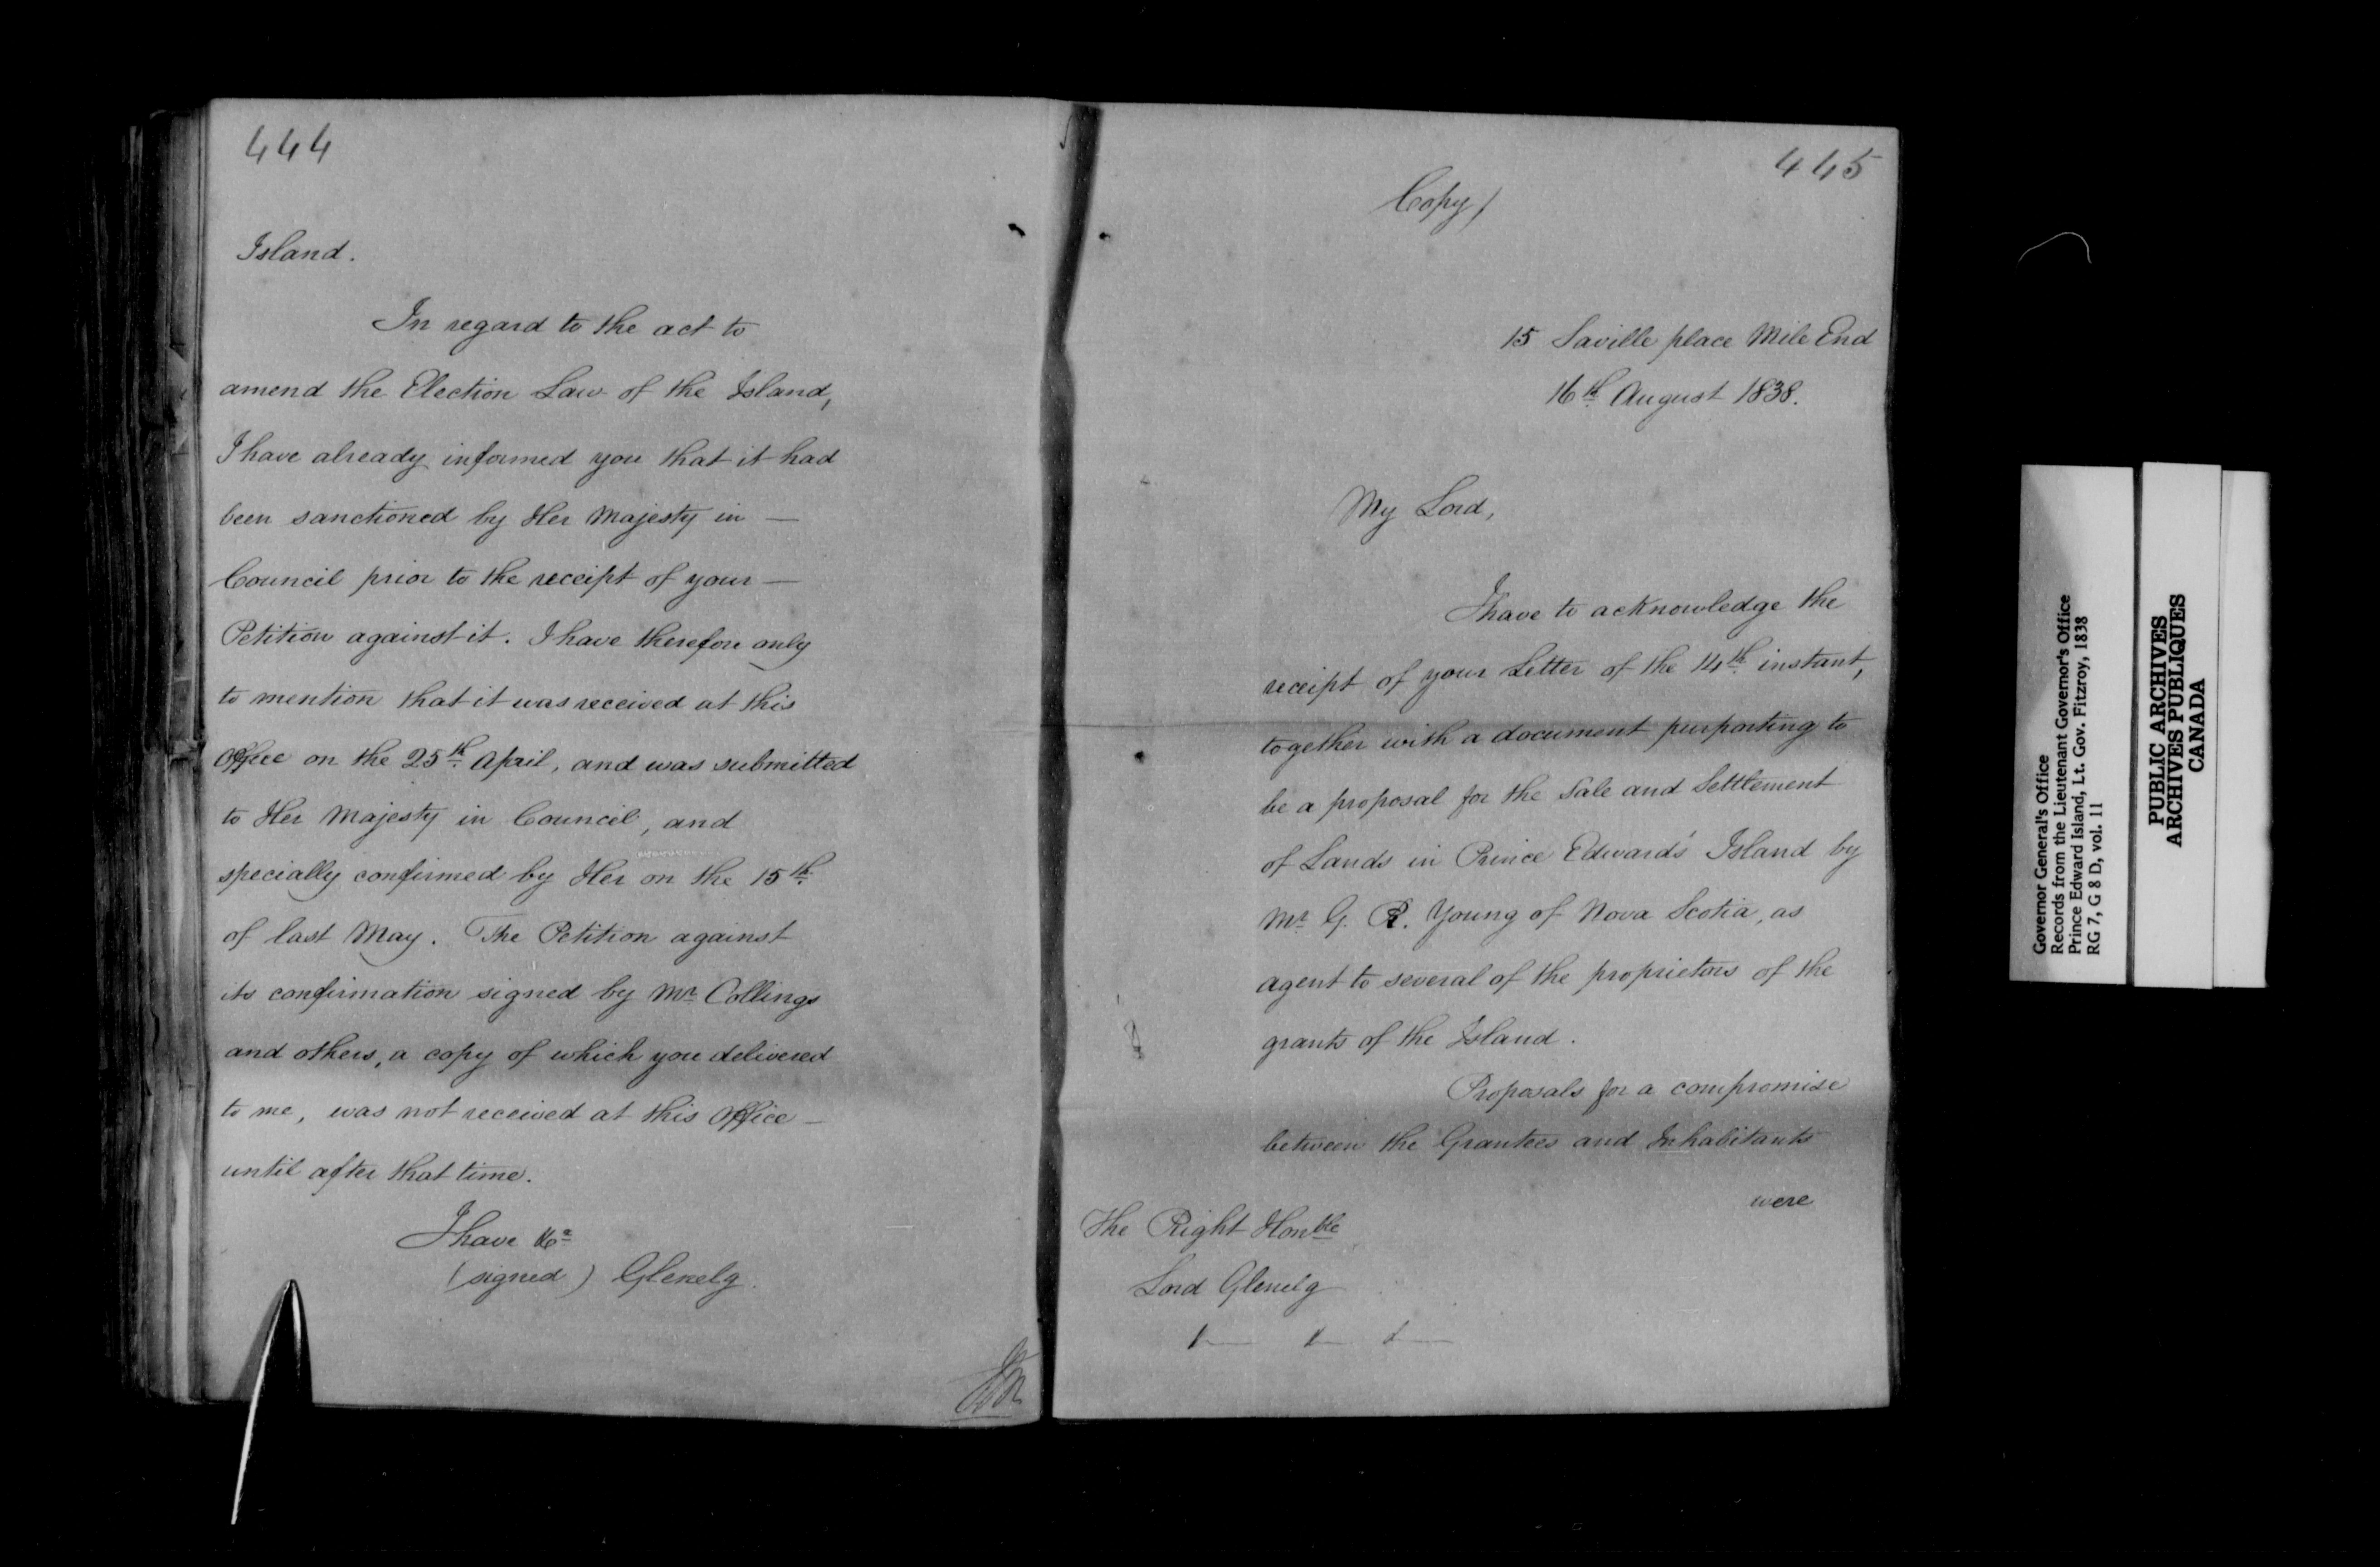 444
Island.
In regard to the act to
amend the Election Law of the Island,
I have already informed you that it had
been sanctioned by Her Majesty in —
Council prior to the receipt of your —
Petition against it. I have therefore only
to mention that it was received at this
Office on the 25th April, and was submitted
to Her Majesty in Council, and
specially confirmed by Her on the 15th
of last May. The Petition against
its confirmation signed by Mr Collings
and others, a copy of which you delivered
to me, was not received at this Office —
until after that time.
I have &c
(signed) Glenelg.
445
Copy/
15 Saville place Mile End
16th August 1838.
My Lord,
I have to acknowledge the
receipt of your Letter of the 14th instant,
together with a document purporting to
be a proposal for the Sale and Settlement
of Lands in Prince Edward's Island by
Mr G. R. Young of Nova Scotia, as
agent to several of the proprietors of the
grants of the Island.
Proposals for a compromise
between the Grantees and Inhabitants
were
The Right Honble
Lord Glenelg
Governor General's Office
Records from the Lieutenant Governor's Office
Prince Edward Island, Lt. Gov. Fitzroy, 1838
RG 7, G 8 D, vol. 11
PUBLIC ARCHIVES
ARCHIVES PUBLIQUES
CANADA